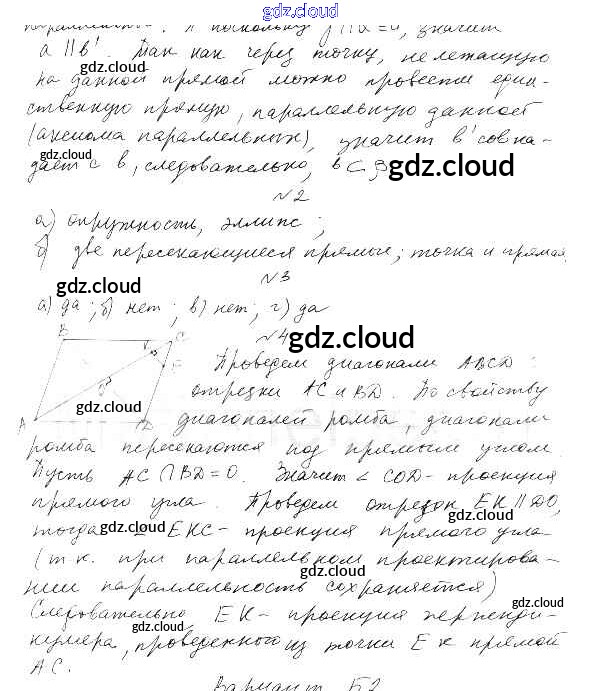 gdz.cloud
а ∥ в'. Так как через точку, не лежащую
gdz.cloud
на данной прямой можно провести един-
ственную прямую, параллельную данной
(аксиома параллельных), значит в' совпа-
gdz.cloud
дает с в, следовательно, в ⊂ β
gdz.cloud
№2
а) окружность, эллипс;
б) две пересекающиеся прямые; точка и прямая
№3
gdz.cloud
а) да; б) нет; в) нет; г) да
№4
gdz.cloud
B
C
K
E
O
A
D
gdz.cloud
Проведем диагонали ABCD:
отрезки AC и BD. По свойству
gdz.cloud
диагоналей ромба, диагонали
ромба пересекаются под прямым углом.
Пусть AC ∩ BD = O. Значит ∠ COD - проекция
gdz.cloud
прямого угла. Проведем отрезок EK ∥ DO,
gdz.cloud
тогда EKC - проекция прямого угла
gdz.cloud
(т.к. при параллельном проектирова-
нии параллельность сохраняется)
gdz.cloud
Следовательно EK - проекция перпенди-
gdz.cloud
куляра, проведенного из точки E к прямой
gdz.cloud
AC.
Вариант Б2